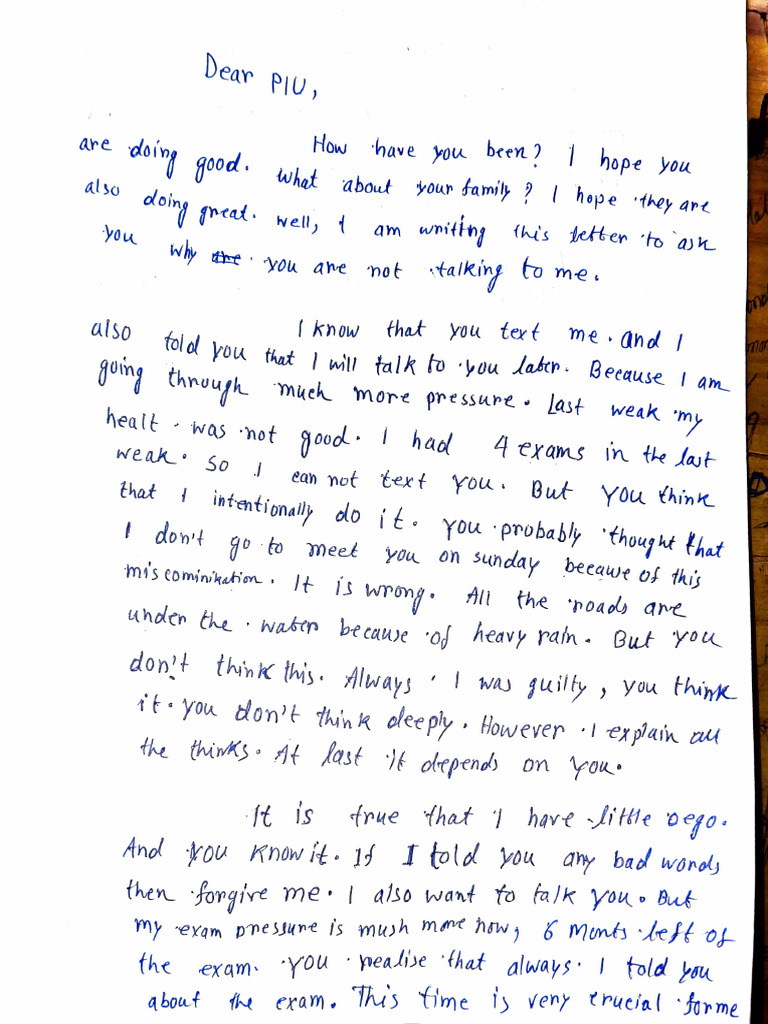 Dear PIU,
How have you been? I hope you
are doing good. What about your family? I hope they are
also doing great. Well, I am writing this letter to ask
you why the you are not talking to me.
I know that you text me. and I
also told you that I will talk to you later. Because I am
going through much more pressure. Last weak my
healt was not good. I had 4 exams in the last
weak. So I can not text you. But you think
that I intentionally do it. you probably thought that
I don't go to meet you on sunday because of this
mis cominikation. It is wrong. All the roads are
under the water because of heavy rain. But you
don't think this. Always I was guilty, you think
it. you don't think deeply. However I explain all
the thinks. At last it depends on you.
It is true that I have little oego.
And you know it. If I told you any bad words
then forgive me. I also want to talk you. But
my exam pressure is mush more now, 6 monts left of
the exam. you realise that always I told you
about the exam. This time is very crucial for me